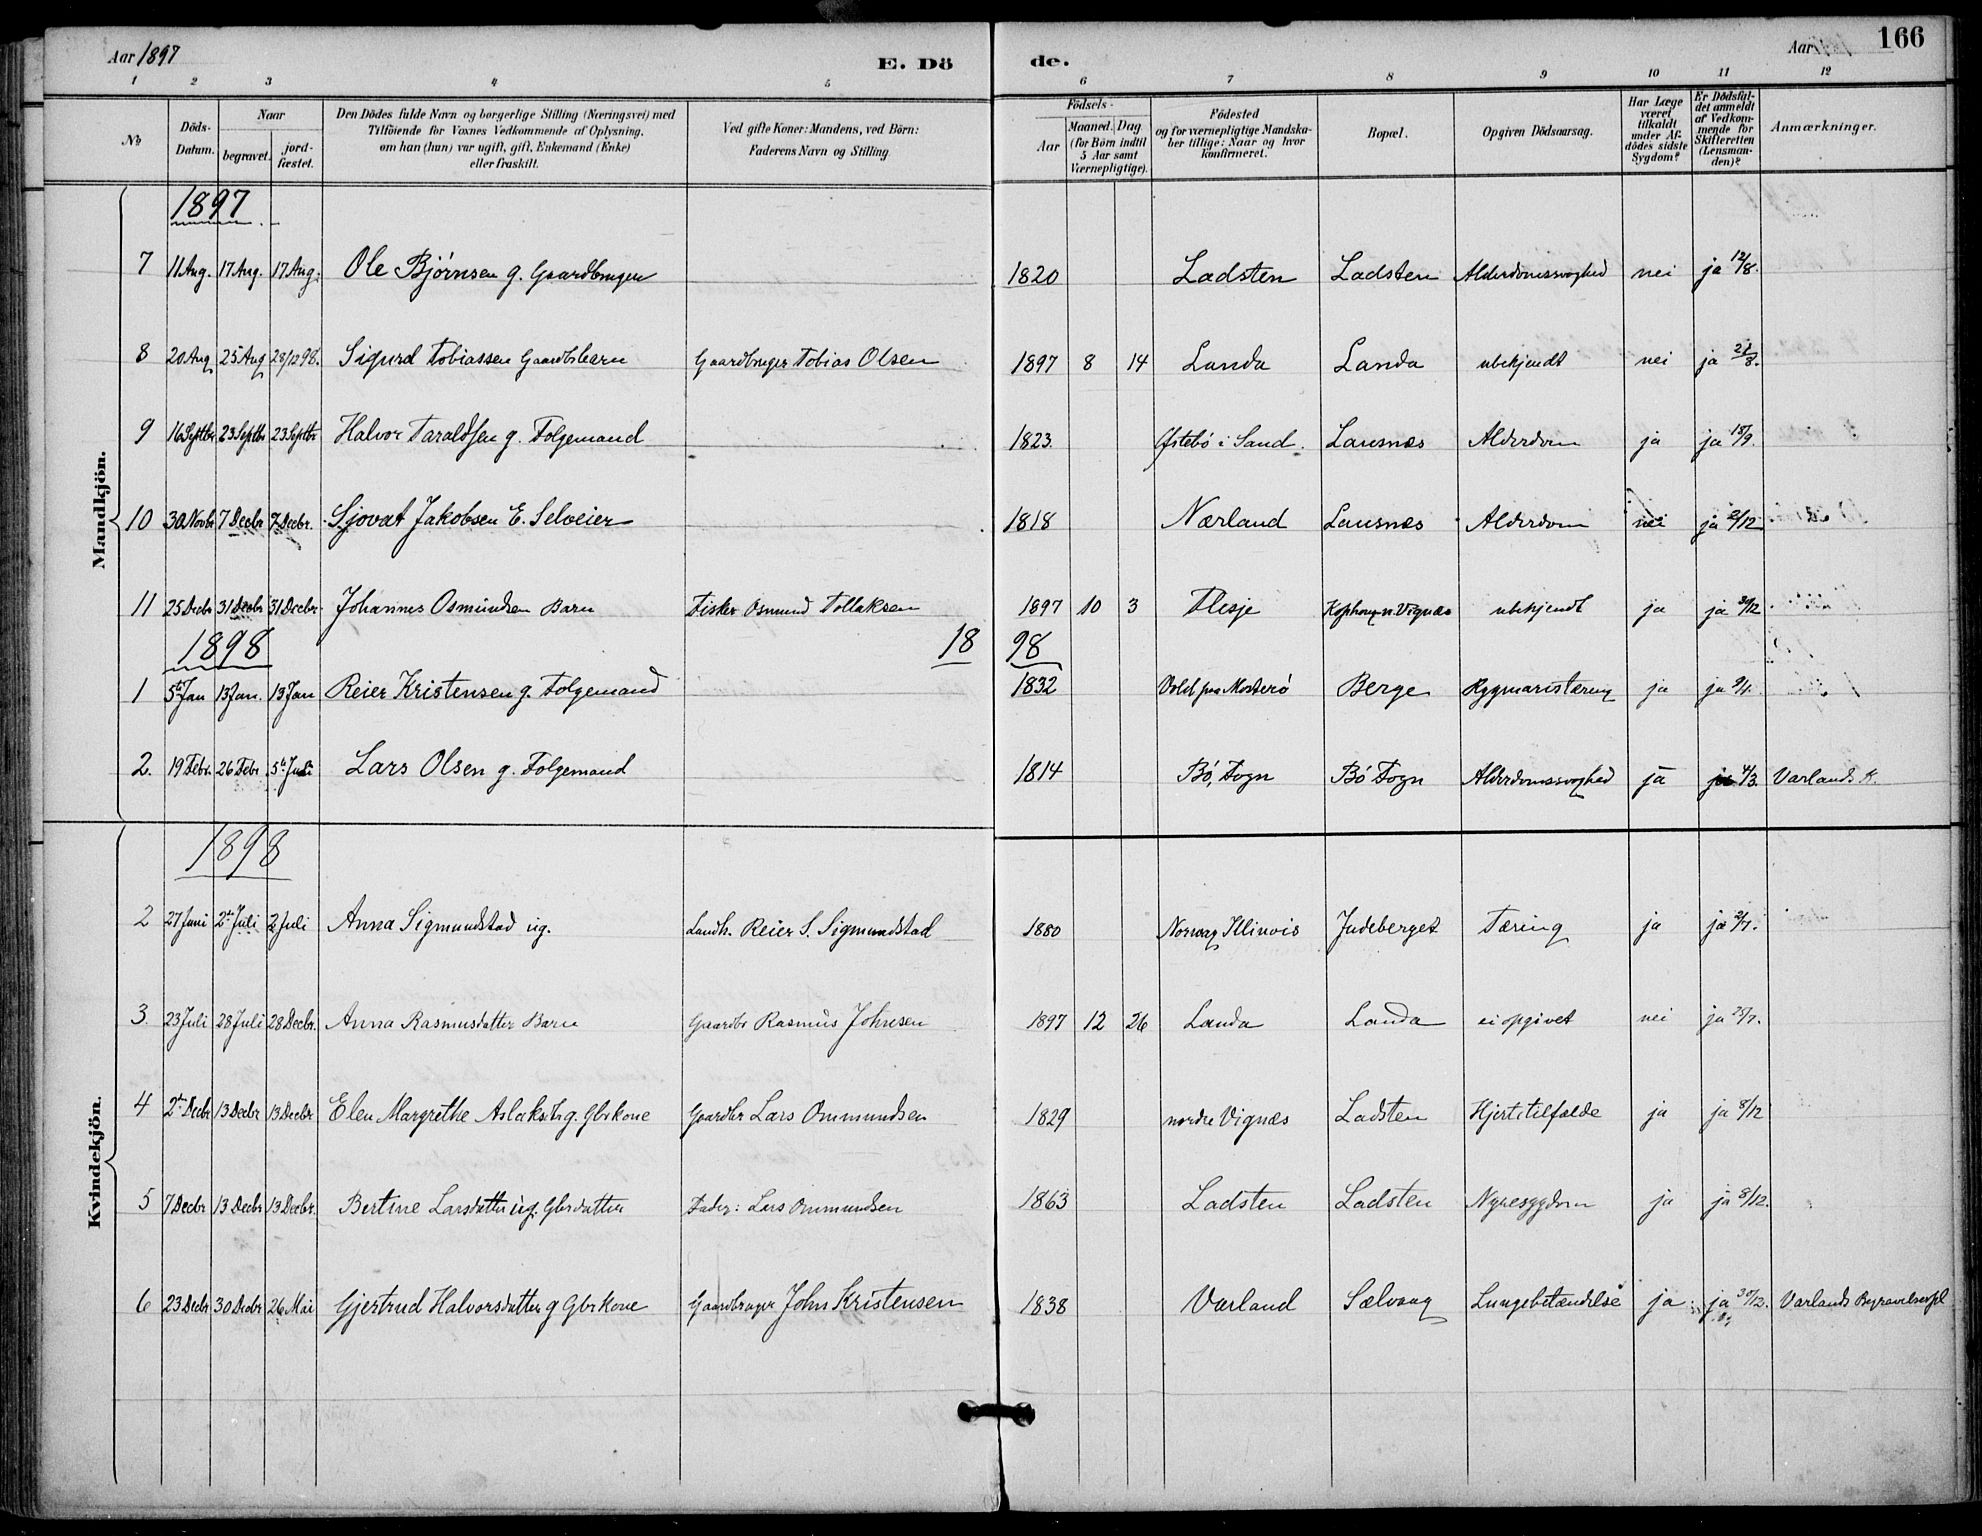 Aar 1897 E. Dö de. Aar 166
1 2 3 4 5 6 7 8 9 10 11 12
No Döds-Datum. Naar begravet. jord-fæstet. Den Dödes fulde Navn og borgerlige Stilling (Næringsvei) med Tilföiende for Voxnes Vedkommende af Oplysning, om han (hun) var ugift, gift, Enkemand (Enke) eller fraskilt. Ved gifte Koner: Mandens, ved Börn: Faderens Navn og Stilling. Födsels- Aar Maaned. Dag (for Börn indtil 5 Aar samt Værnepligtige). Födested og for værnepligtige Mandska-ber tillige: Naar og hvor konfirmeret. Bopæl. Opgiven Dödsaarsag. Har Læge været tilkaldt under Af-dödes sidste Sygdom? Er Dödsfal-det anmeldt af Vedkom-mende for Skifteretten (Lensman-den)? Anmærkninger.
Mandkjön.
1897
7 11 Aug. 17 Aug. 17 Aug. Ole Bjørnsen g. Gaardbruger 1820 Ladsten Ladsten Alderdomssvaghed nei ja 12/8.
8 20 Aug 25 Aug 28/12 98. Sigurd Tobiassen Gaardbsbarn Gaardbruger Tobias Olsen 1897 8 14 Landa Landa ubekjendt nei ja 21/8.
9 16 Septbr 23 Septbr 23 Septbr Halvor Taraldsen g. Folgemand 1823 Østebö i Sand. Lausnæs Alderdom ja ja 18/9.
10 30 Novbr 7 Decbr 7 Decbr. Sjovat Jakobsen E. Selveier 1818 Nærland Lausnæs Alderdom nei ja 2/12
11 25 Decbr 31 Decbr 31 Decbr. Johannes Osmundsen Barn Fisker Osmund Tollaksen 1897 10 3 Flesje Kophaug n. Vignæs ubekjendt ja ja 30/12
1898 18 98
1 5te Jan 13 Jan. 13 Jan Reier Kristensen g. Folgemand 1832 Vold paa Mosterö Berge Rygmarvstæring ja ja
2. 19 Febr. 26 Febr. 5te Juli Lars Olsen g. Folgemand 1814 Bö, Fogn Bö Fogn Alderdomssvaghed ja ja 4/3. Varlands K.
Kvindekjön.
1898
2 27 Juni 2den Juli 2 Juli Anna Sigmundstad ug. Landh. Reier S. Sigmundstad 1880 Norway Illinois Judeberget Tæring ja ja 2/7.
3. 23 Juli 28 Juli 28 Decbr. Anna Rasmusdatter Barn Gaardbr Rasmus Johnsen 1897 12 26 Landa Landa ei opgivet nei ja 25/7.
4 2den Decbr 13 Decbr 13 Decbr Elen Margrethe Aslaksdtr g. Gbrkone Gaardbr Lars Ommundsen 1829 nordre Vignæs Ladsten Hjertetilfælde ja ja 8/12
5 7 Decbr 13 Decbr 13 Decbr. Bertine Larsdatter ug. Gbrdatter Fader: Lars Ommundsen 1863 Ladsten Ladsten Nyresygdom ja ja 8/12.
6 23 Decbr 30 Decbr 26 Mai Gjertrud Halvorsdatter g Gbrkone Gaardbruger John Kristensen 1838 Varland Sælvaag Lungebetændelse ja ja 30/12. Varlands Begravelsespl